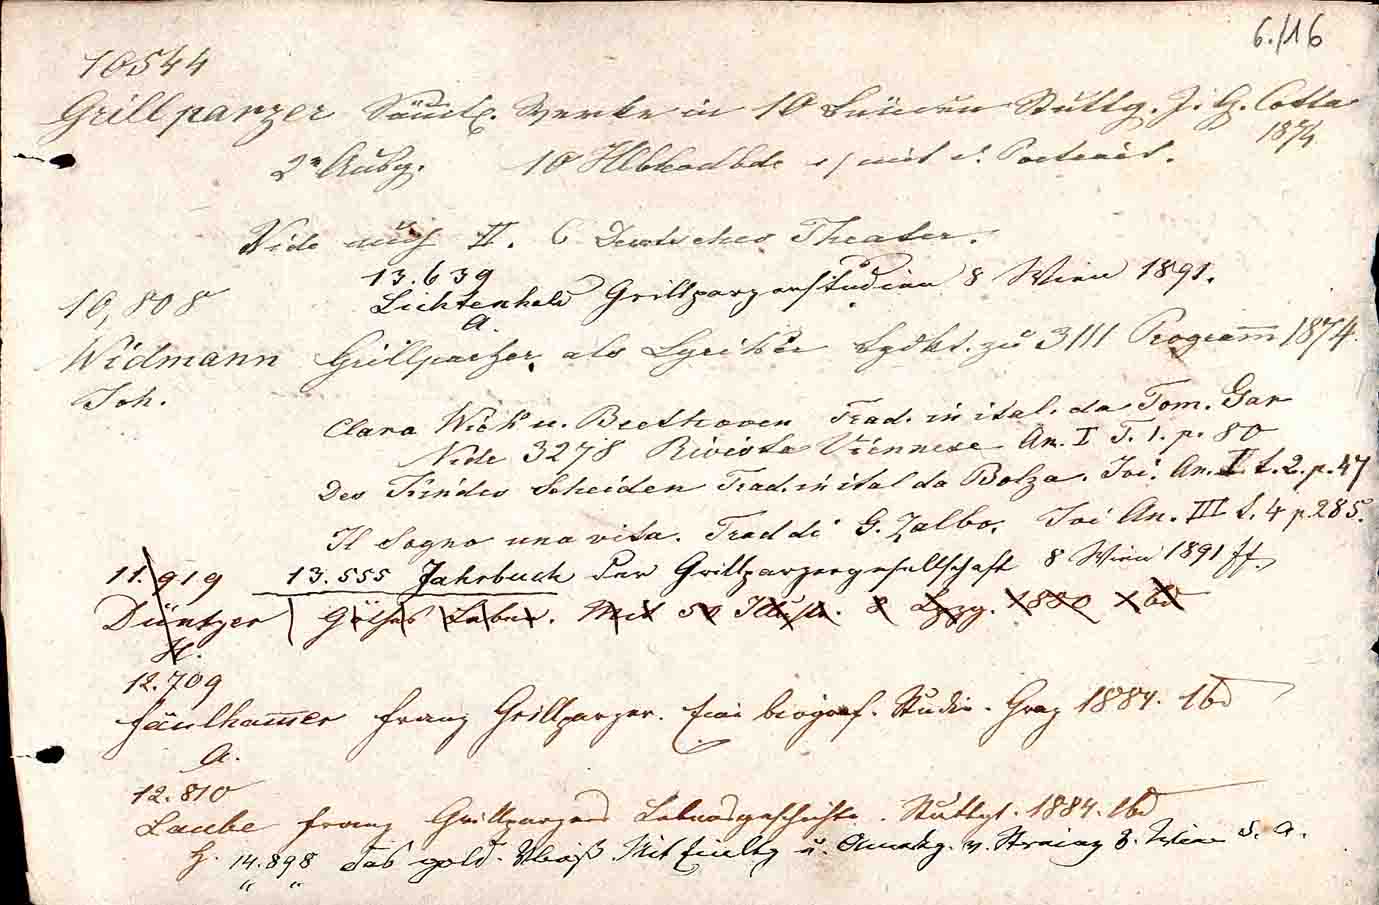 6./16
10544
Grillparzer Sämtl. Werke in 10 Bänden Stuttg. J. G. Cotta
1874
2e Ausg. 10 Hlbleodbde mit d. Portrait.
Vide auch II. C Deutsches Theater.
13.639
Lichtenheld Grillparzerstudien 8 Wien 1891.
A.
10,808
Widmann Grillparzer als Lyriker zu 3111 Programm 1874.
Joh.
Clara Wiek u. Beethoven Trad. in ital. da Tom. Gar
Vide 3278 Rivista Viennese An. I T. 1. p. 80
Des Kindes Scheiden Trad. in ital da Bolza. Ivi. An. II t. 2. p. 47
Il Sogno una vita. Trad di G. Ivi An. III t. 4 p. 285.
11.919 13.555 Jahrbuch der Grillparzergesellschaft 8 Wien 1891 ff.
Düntzer Göthes Leben. Mit 50 Illustr. 8 Lpzg. 1880 1 bd
H.
12.709
Fäulhammer Franz Grillparzer. Eine biograf. Studie. Graz 1884. 1 bd
A.
12.810
Laube Franz Grillparzers Lebensgeschichte. Stuttgt. 1884. 1 bd
H. 14.898 Das gold. Vließ. Mit Einltg u. Anmkg. v. Streinz 8. Wien s. a.
" "